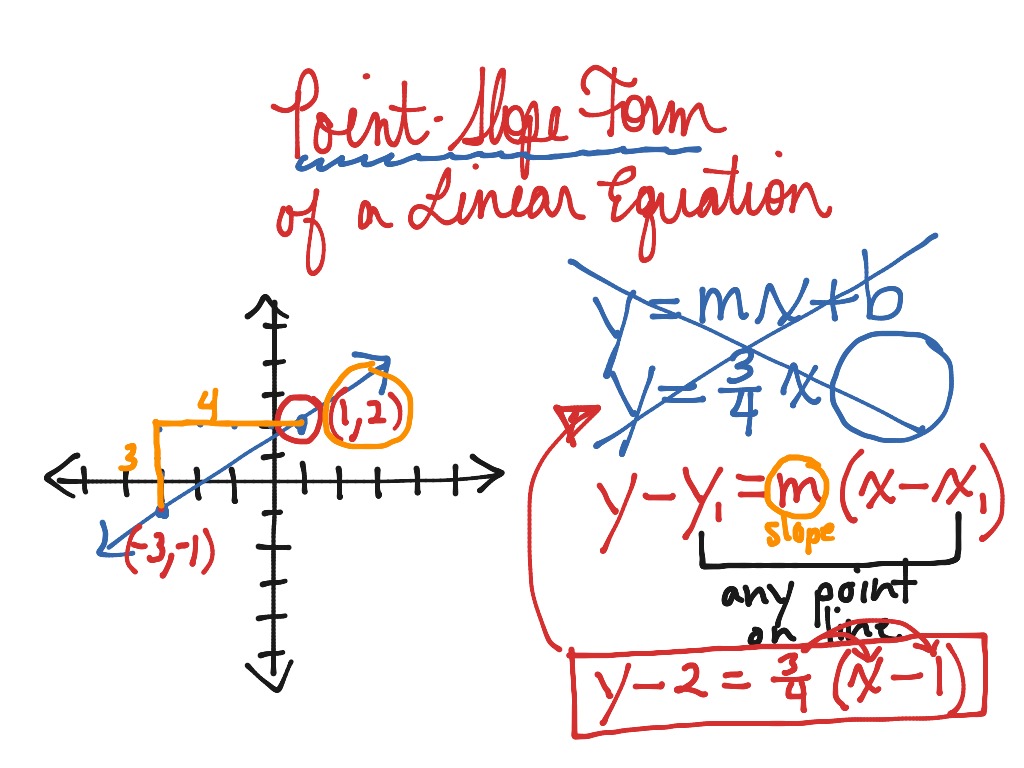 Point-Slope Form
of a Linear Equation
y = mx + b
y = 3/4 x
4
(1,2)
3
(-3,-1)
y - y₁ = m (x - x₁)
slope
any point
on line
y - 2 = 3/4 (x - 1)